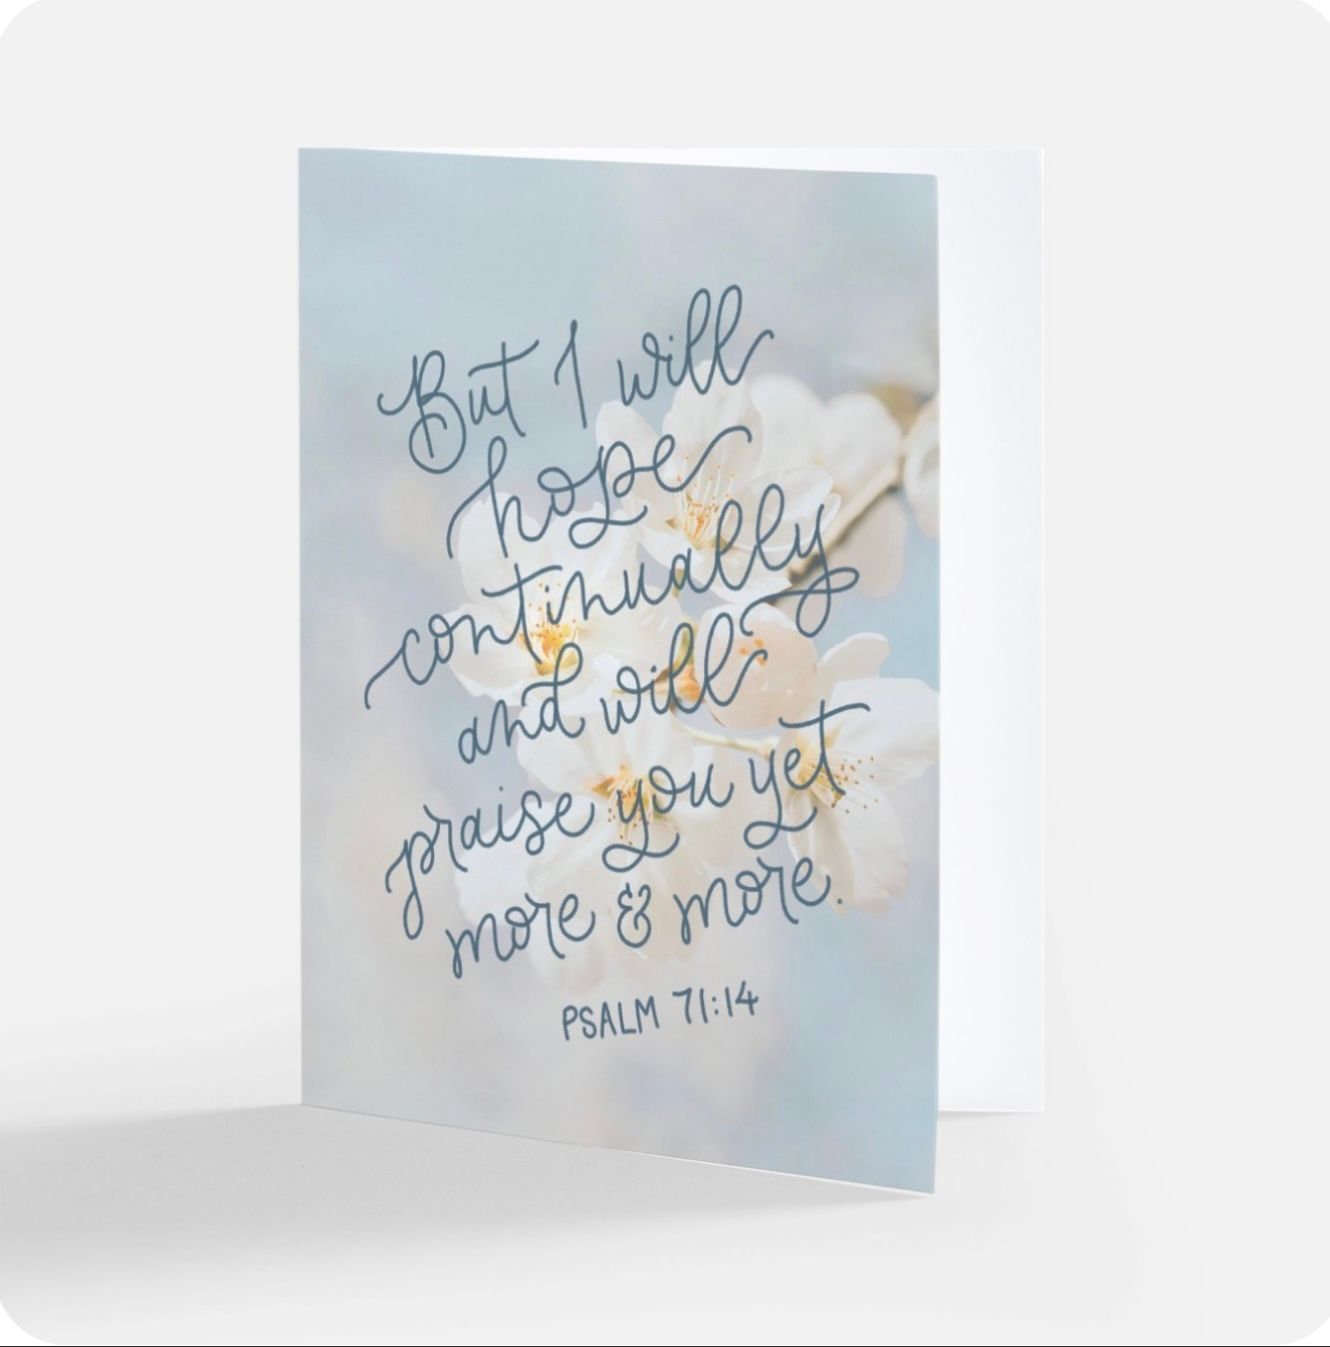 But I will
hope
continually
and will
praise you yet
more & more.
PSALM 71:14